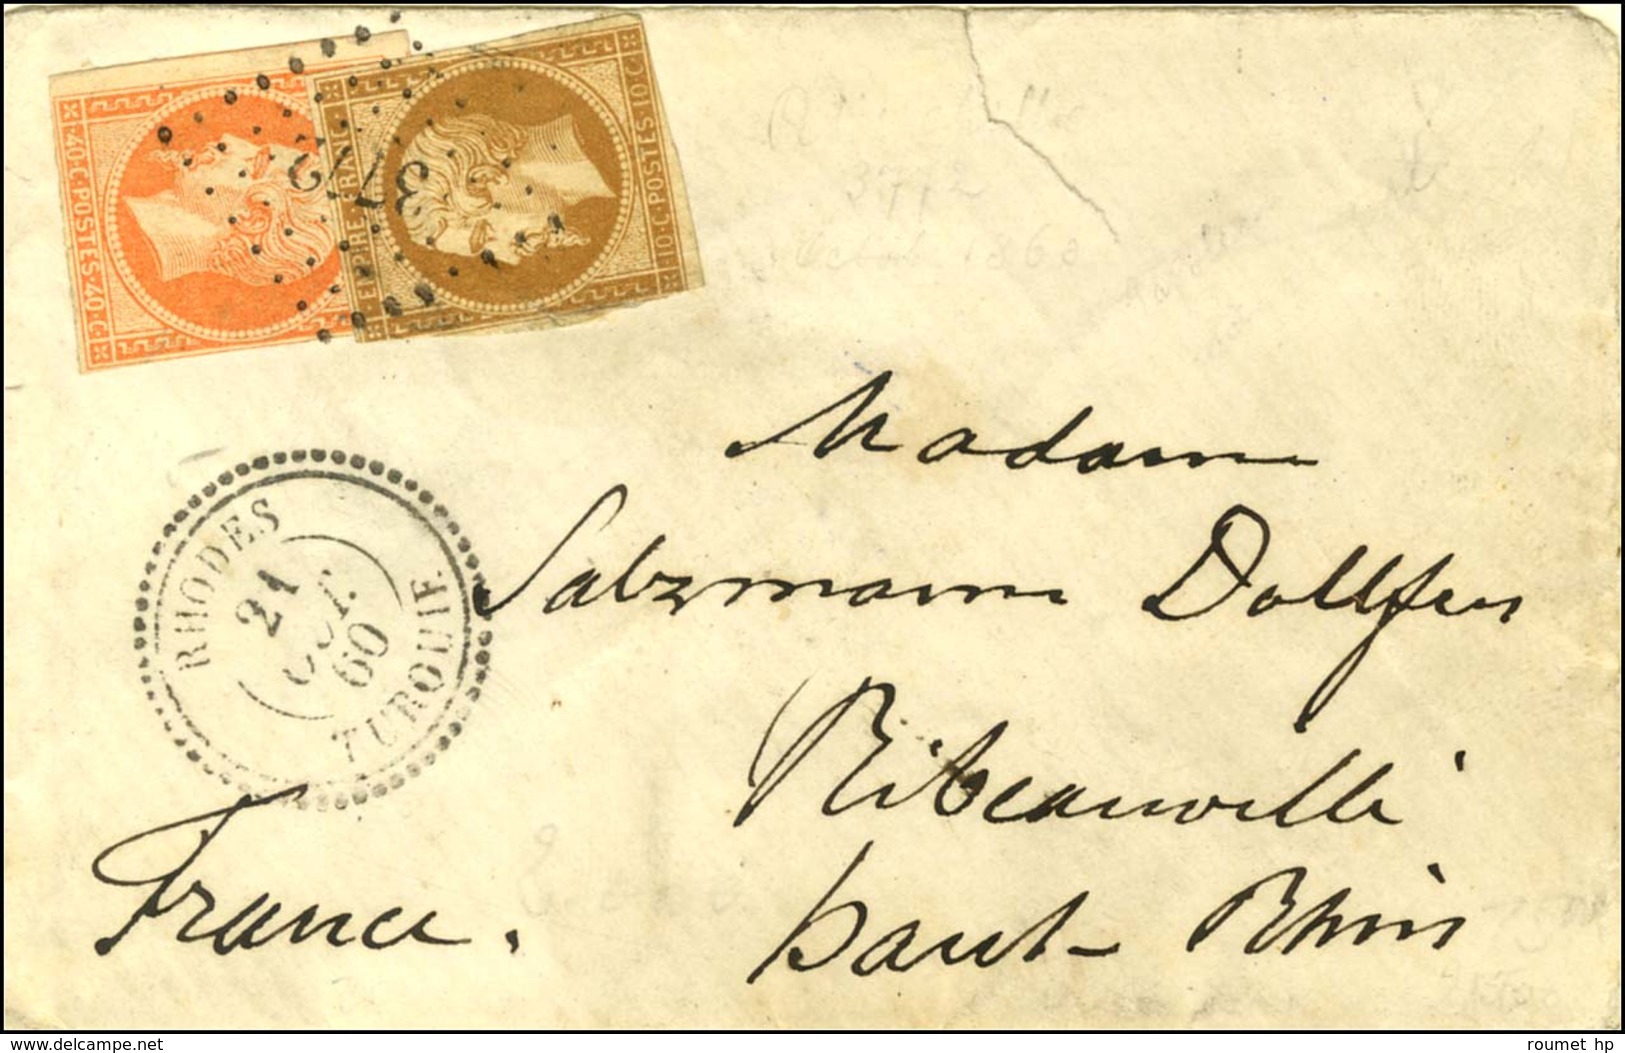 40·C·POSTES·40·C·
EMPIRE·FRANC·
10·C·POSTES·10·C·
3772
3772
1860
Madame
Salzmann Dollfus
Ribeauvillé
haut-Rhin
France.
RHODES
21
OCT.
60
TURQUIE
roumet hp